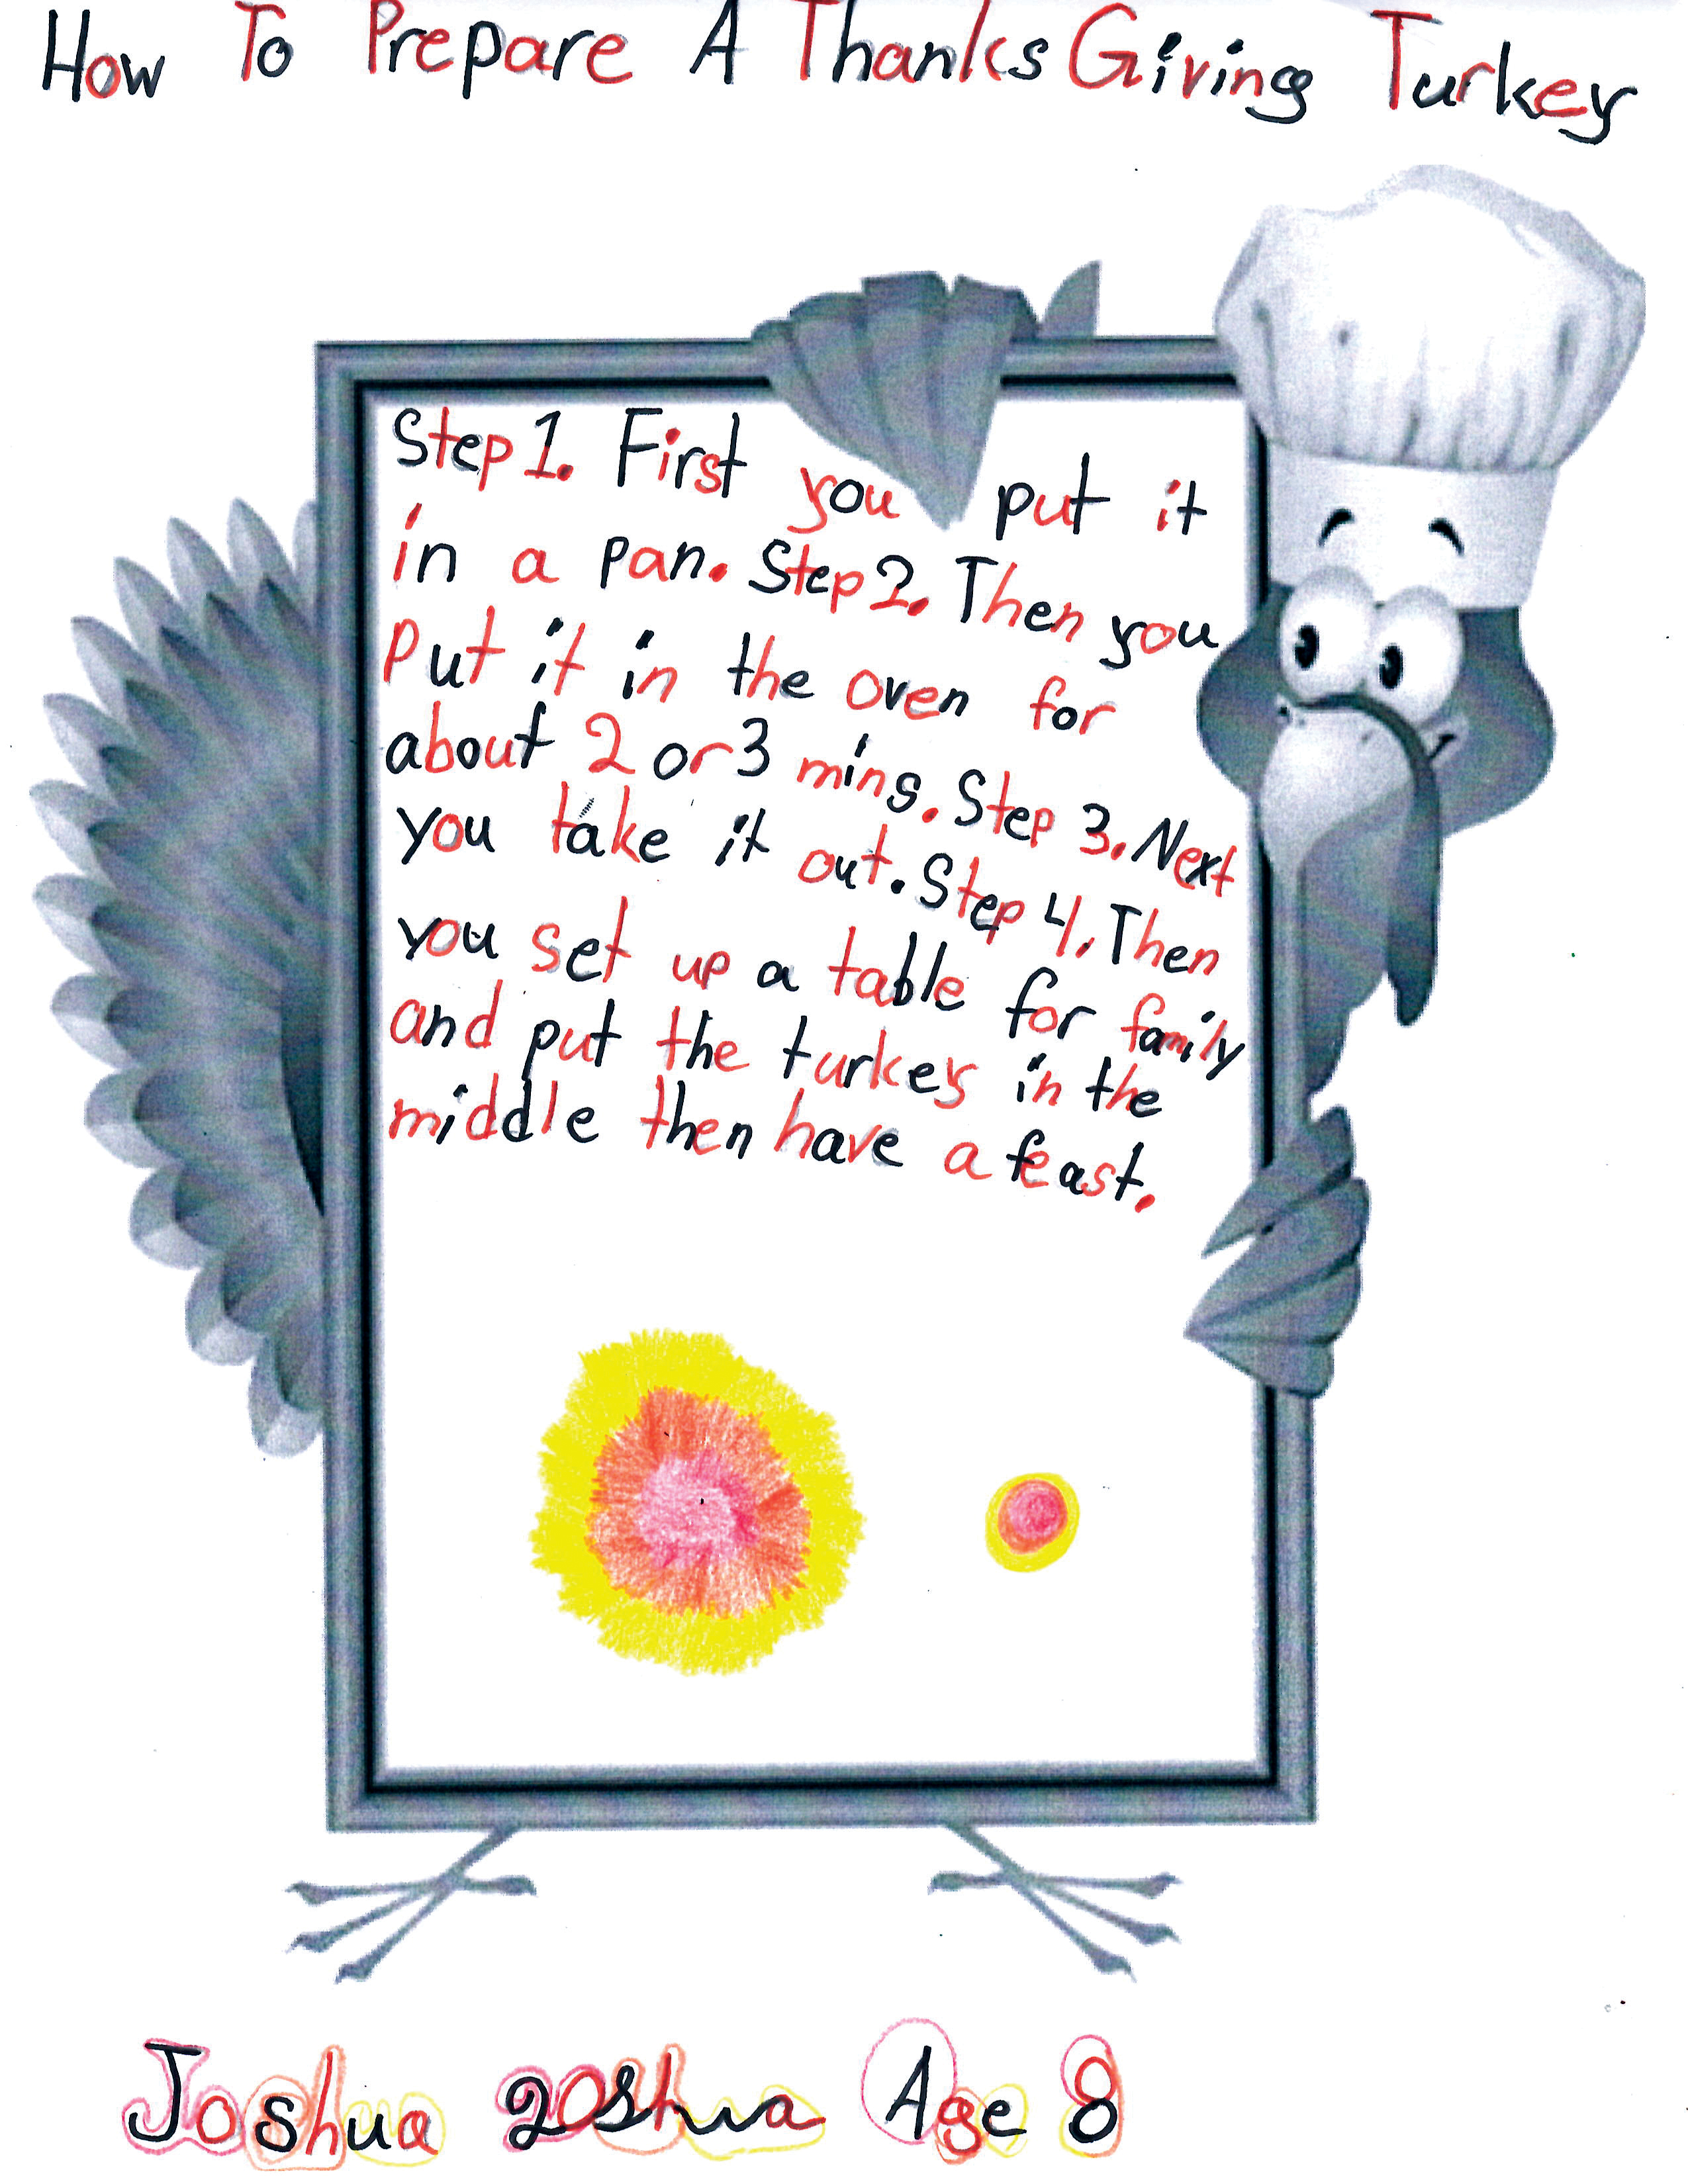 How To Prepare A Thanks Giving Turkey
Step 1. First you put it
in a pan. Step 2. Then you
put it in the oven for
about 2 or 3 mins. Step 3. Next
you take it out. Step 4. Then
you set up a table for family
and put the turkey in the
middle then have a feast.
Joshua Joshua Age 8